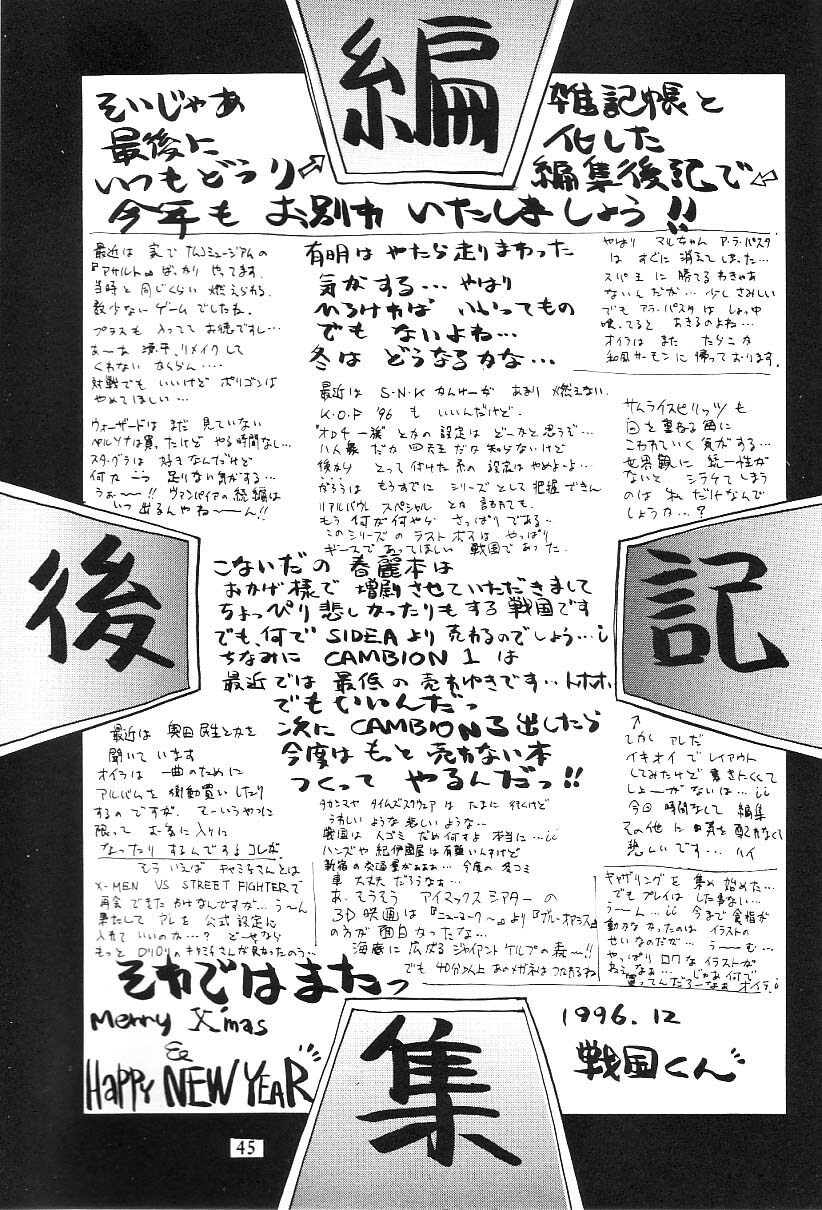 編
集
後
記
そいじゃあ
最後に
いつもどうり
雑記帳と
化した
編集後記で
今年も お別れ いたしましょう!!
最近は 実で ナムコミュージアムの
『アサルト』ばっかり やってます。
当時と 同じくらい 燃えられる
数少ない ゲームでしたね。
プラスも 入ってて お徳ですし…
あーな 源平、リメイクして
くれない ならん…
対戦でも いいけど ポリゴンは
やめてほしい…
ウォーザードは まだ 見ていない
ペルソナは買ったけど やる時間なし…
スタ・グラは 好きなんだけど
何か 一つ 足りない気がする…
うぉ〜〜!! ヴァンパイアの続編は
いつ 出るんやね〜〜ん!!
有明は やたら走りまわった
気がする… やはり
ひろければ いいってもの
でも ないよね…
冬は どうなるかな…
やはり マルちゃん ア・ラ・パスタ
は すぐに 消えてしまった…
スパ王 に 勝てる わきゃあ
ないんだが… 少し さみしい
でも アラ・パスタは しょっ中
喰ってると あきるのよね…
オイラは また たらこか
和風サーモンに 帰っております。
最近は S・N・K かんけーが あまり 燃えない
K.O.F '96 も いいんだけど。
"オロチ一族" とかの 設定は どーかと思うぞ…
八人衆 だか 四天王 だか 知らないけど
後から とって付けた系の 設定は やめよーよ…
がろうは もうすでに シリーズとして 把握できん
リアルバウト スペシャル とか 言われても
もう 何が何やら さっぱりである…
このシリーズの ラストボスは やっぱり
ギースであってほしい 戦国であった。
サムライスピリッツも
回を 重ねる毎に
こわれていく 気がする…
世界観に 統一性が
ないと シラケてしまう
のは 私だけなんで
しょうか…?
こないだの 春麗本は
おかげ様で 増刷させていただきまして
ちょっぴり 悲しかったりもする 戦国です
でも、何で SIDEAより 売れるのでしょう…
ちなみに CAMBION 1 は
最近では 最低の 売れゆきです… トホホ
でもいいんだっ
次に CAMBION 3 出したら
今度は もっと 売れない本
つくって やるんだっ!!
最近は 奥田民生とかを
聞いています
オイラは 一曲のために
アルバムを 衝動買いしたり
するのですが、 そーいうやつに
限って お気に入りに
なったり するんですよコレが
もう いえば キャミィさんとは
X-MEN VS STREET FIGHTERで
再会できた わけなんですが… う〜ん
果たして アレを 公式設定に
入れて いいのか…? どーせなら
もっと ロリロリの キャミィさんが良かったのう…
タカシマヤ タイムズスクウェア は たまに 行くけど
うれしい ような 悲しい ような…
戦国は 人ゴミ だめ何すよ 本当に…
ハンズや 紀伊國屋は 有難いんすけど
新宿の 交通量がぁぁぁ… 今度の 冬コミ
車 大丈夫 だろうなぁ…
あ、そうそう アイマックスシアター の
3D 映画は 『ニューヨーク〜』より『ブルーオアシス』
の方が 面白かったな…
海底に 広がる ジャイアント ケルプの 森〜!!
でも 40分以上 あのメガネは つかれるね
しかし アレだ
イキオイで レイアウト
してみたけど 書きにくくて
しょーがないは…
今回 時間なくて 編集
その他に 目気を 配れなくて
悲しいです… ハイ
ギャザリングを 集め 始めた…
でも プレイは した事ない…
う〜ん… 今まで 食指が
動かなかったのは イラストの
せいなのだが… う〜む…
やっぱり ロクな イラストが
ねぇなぁ… じゃあ 何で
買ってんだろーなぁ オイラ
それではまたっ
Merry X'mas
&
HAPPY NEW YEAR
1996.12
戦国くん
45